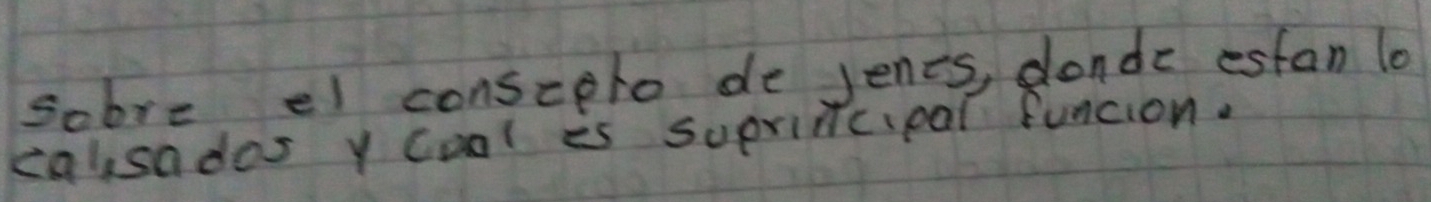 sobre el conscepto de jenes, donde estan lo
calisados y cual es suprincipal funcion.